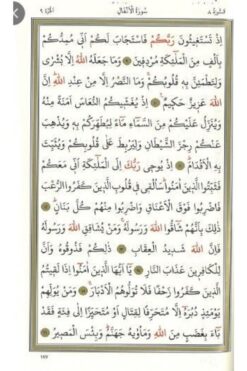 الجزء ٩ سورة الأنفال سورة ٨
إِذْ تَسْتَغِيثُونَ رَبَّكُمْ فَاسْتَجَابَ لَكُمْ أَنِّى مُمِدُّكُمْ
بِأَلْفٍ مِنَ الْمَلَٰئِكَةِ مُرْدِفِينَ ۝ وَمَا جَعَلَهُ اللهُ إِلَّا بُشْرَىٰ
وَلِتَطْمَئِنَّ بِهِ قُلُوبُكُمْ وَمَا النَّصْرُ إِلَّا مِنْ عِنْدِ اللهِ إِنَّ
اللهَ عَزِيزٌ حَكِيمٌ ۝ إِذْ يُغَشِّيكُمُ النُّعَاسَ أَمَنَةً مِنْهُ
وَيُنَزِّلُ عَلَيْكُمْ مِنَ السَّمَاءِ مَاءً لِيُطَهِّرَكُمْ بِهِ وَيُذْهِبَ
عَنْكُمْ رِجْزَ الشَّيْطَانِ وَلِيَرْبِطَ عَلَىٰ قُلُوبِكُمْ وَيُثَبِّتَ
بِهِ الْأَقْدَامَ ۝ إِذْ يُوحِى رَبُّكَ إِلَى الْمَلَٰئِكَةِ أَنِّى مَعَكُمْ
فَثَبِّتُوا الَّذِينَ آمَنُوا سَأُلْقِى فِى قُلُوبِ الَّذِينَ كَفَرُوا الرُّعْبَ
فَاضْرِبُوا فَوْقَ الْأَعْنَاقِ وَاضْرِبُوا مِنْهُمْ كُلَّ بَنَانٍ ۝
ذَٰلِكَ بِأَنَّهُمْ شَاقُّوا اللهَ وَرَسُولَهُ وَمَنْ يُشَاقِقِ اللهَ وَرَسُولَهُ
فَإِنَّ اللهَ شَدِيدُ الْعِقَابِ ۝ ذَٰلِكُمْ فَذُوقُوهُ وَأَنَّ
لِلْكَافِرِينَ عَذَابَ النَّارِ ۝ يَا أَيُّهَا الَّذِينَ آمَنُوا إِذَا لَقِيتُمُ
الَّذِينَ كَفَرُوا زَحْفًا فَلَا تُوَلُّوهُمُ الْأَدْبَارَ ۝ وَمَنْ يُوَلِّهِمْ
يَوْمَئِذٍ دُبُرَهُ إِلَّا مُتَحَرِّفًا لِقِتَالٍ أَوْ مُتَحَيِّزًا إِلَىٰ فِئَةٍ فَقَدْ
بَاءَ بِغَضَبٍ مِنَ اللهِ وَمَأْوَاهُ جَهَنَّمُ وَبِئْسَ الْمَصِيرُ ۝